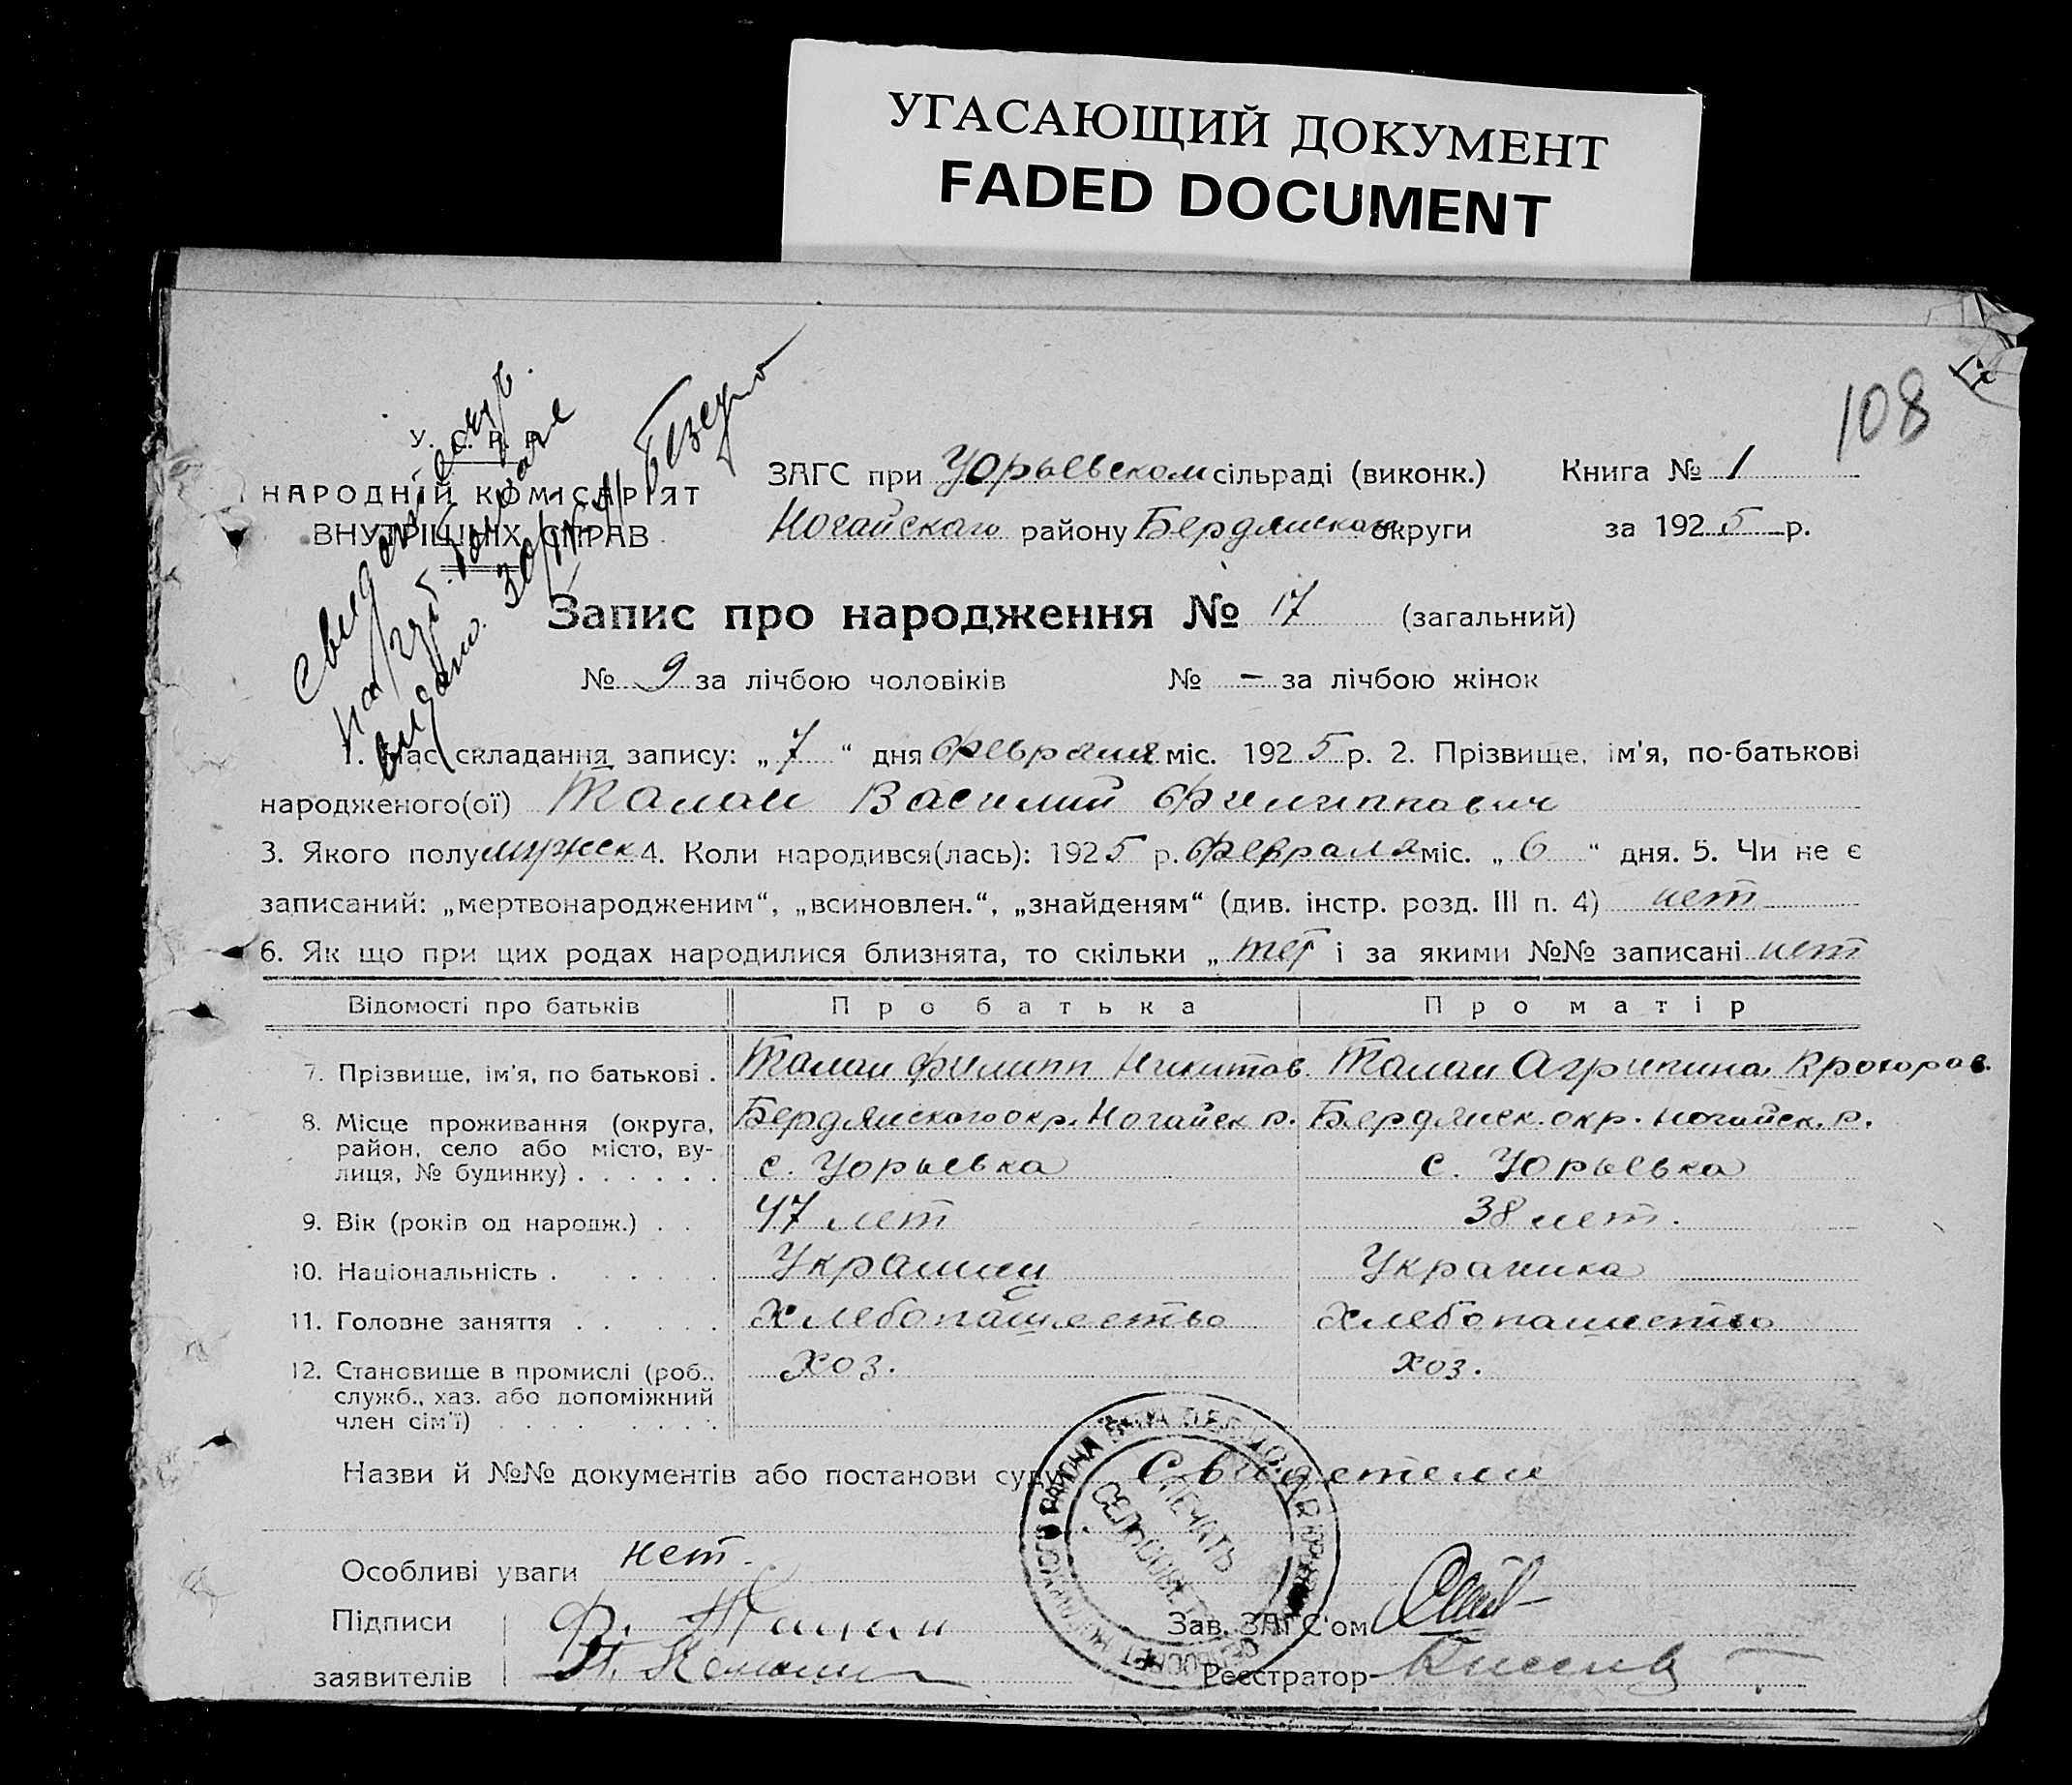 УГАСАЮЩИЙ ДОКУМЕНТ
FADED DOCUMENT
108
17
У. С. Р. Р.
НАРОДНІЙ КОМІСАРІЯТ
ВНУТРІШНІХ СПРАВ
выдано. 30/
ЗАГС при Юрьевском сільраді (виконк.) Книга № 1
Ногайского району Бердянского округи за 1925 р.
Запис про народження № 17 (загальний)
№ 9 за лічбою чоловіків № – за лічбою жінок
1. Час складання запису: „7“ дня февраля міс. 1925 р. 2. Прізвище, ім'я, по-батькові
народженого(ої) Талан Василий Филиппович
3. Якого полу мужск 4. Коли народився(лась): 1925 р. Февраля міс. „6“ дня. 5. Чи не є
записаний: „мертвонародженим“, „всиновлен.“, „знайденям“ (див. інстр. розд. III п. 4) нет
6. Як що при цих родах народилися близнята, то скільки „ і за якими №№ записані нет
Відомості про батьків Про батька Про матір
7. Прізвище, ім'я, по батькові . Талан Филипп Никитов. Талан Агрипина
8. Місце проживання (округа, район, село або місто, вулиця, № будинку) . . . . . . Бердянского окр. Ногайск р. Бердянск. окр. Ногайск. р.
с. Юрьевка с. Юрьевка
9. Вік (років од народж.) . . 47 лет 38 лет.
10. Національність . . . . . . Украинец Украинка
11. Головне заняття . . . . . Хлебопашество Хлебопашество
12. Становище в промислі (роб., служб., хаз. або допоміжний член сім'ї) . . . . . . хоз. хоз.
Назви й №№ документів або постанови суду Свидетели
ПЕЧАТЬ
СЕЛЬСОВЕТА
Особливі уваги нет.
Підписи Ф. Талан Зав. ЗАГС'ом
заявителів Реєстратор